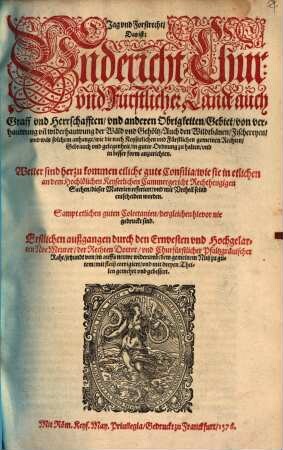 Jag vnd Forstrecht/
Das ist:
Vndericht Chur
vnd Fürstlicher Landt auch
Graff vnd Herrschafften/ vnd anderen Obrigkeiten/ Gebiet/ von ver-
hauwung vñ widerhauwung der Wäld vnd Gehöltz/ Auch den Wildbänen/ Fischereyen/
vnd was solchem anhangt/ wie die nach Keyserlichen vnd Fürstlichen gemeinen Rechten/
Gebrauch vnd gelegenheit/ in guter Ordnung zu halten/ vnd
in besser form anzurichten.
Weiter sind herzu kommen etliche gute Consilia/ wie sie in etlichen
an dem Hochlöblichen Keyserlichen Cammergericht Rechthengigen
Sachen/ dieser Materien referiert/ vnd mit Vrtheil seind
entscheiden worden.
Sampt etlichen guten Colectanien/ dergleichen hievor nie
gedruckt sind.
Erstlichen außgangen durch den Ernvesten vnd Hochgelar-
ten Noe Meurer/ der Rechten Doctor/ vnd Churfürstlicher Pfaltzgräuischer
Raht/ jetzundt von jm auffs neuwe widerumb/ dem gemeinem Nutz zu gu-
tem/ mit fleiß corrigiert/ vnd mit dreyen Thei-
len gemehrt vnd gebessert.
Mit Röm. Keys. May. Priuilegia/ Gedruckt zu Franckfurt/ 1576.